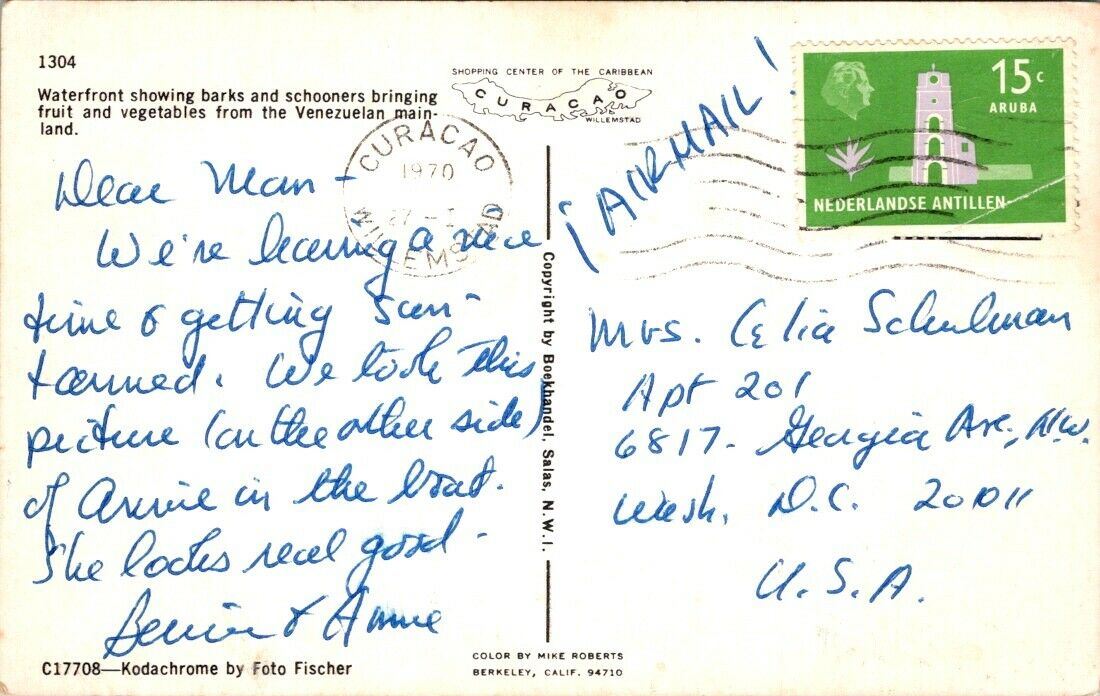 1304
Waterfront showing barks and schooners bringing
fruit and vegetables from the Venezuelan main-
land.
SHOPPING CENTER OF THE CARIBBEAN
CURACAO
WILLEMSTAD
CURACAO
1970
WILLEMSTAD
15c
ARUBA
NEDERLANDSE ANTILLEN
¡AIRMAIL!
Dear Mom -
We're having a nice
time & getting sun-
tanned. We took this
picture (on the other side)
of Annie in the boat.
She looks real good -
& Annie
Copyright by Boekhandel, Salas, N.W.I.
Mrs. Celia Schulman
Apt 201
6817- Georgia Ave., N.W.
Wash. D.C. 20011
U.S.A.
C17708—Kodachrome by Foto Fischer
COLOR BY MIKE ROBERTS
BERKELEY, CALIF. 94710